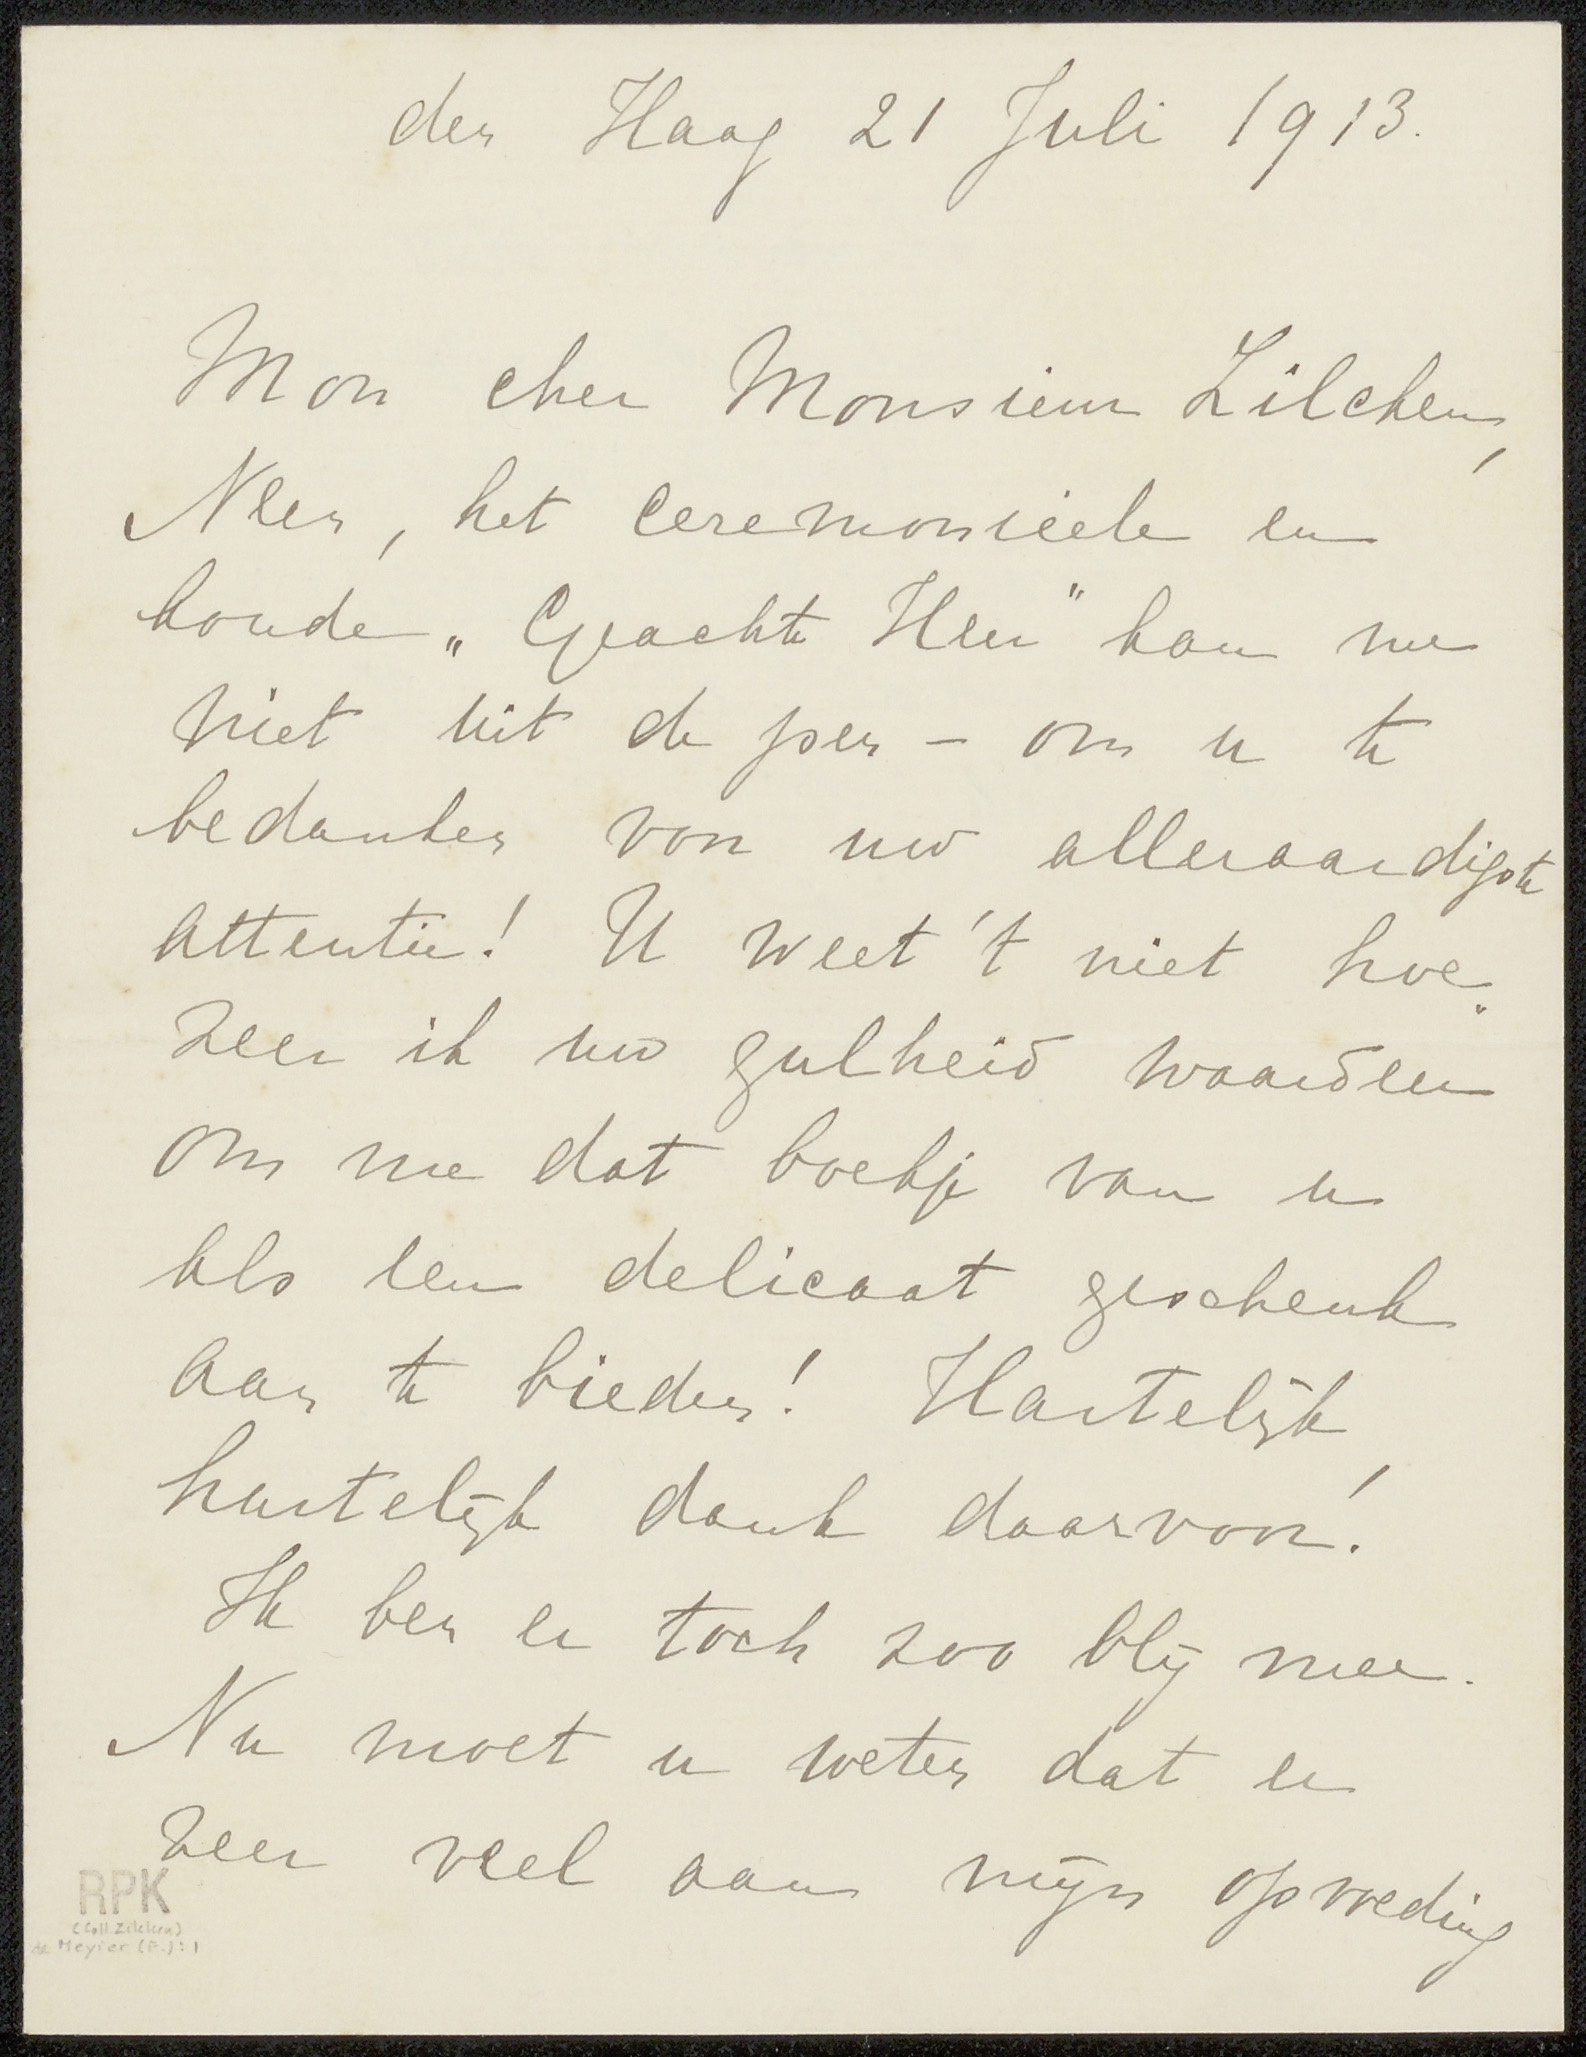 den Haag 21 Juli 1913.
Mon cher Monsieur Zilcken,
Neen, het ceremonieele en
koude „Geachte Heer" kan me
niet uit de pen – om u te
bedanken voor uw alleraardigste
attentie! U weet 't niet hoe„
zeer ik uw gulheid waardeer
om me dat boekje van u
als een delicaat geschenk
aan te bieden! Hartelijk,
hartelijk dank daarvoor!
Ik ben er toch zoo blij mee.
Nu moet u weten dat er
zeer veel aan mijn opvoeding
RPK
(Coll. Zilcken)
de Meyier (F.): 1